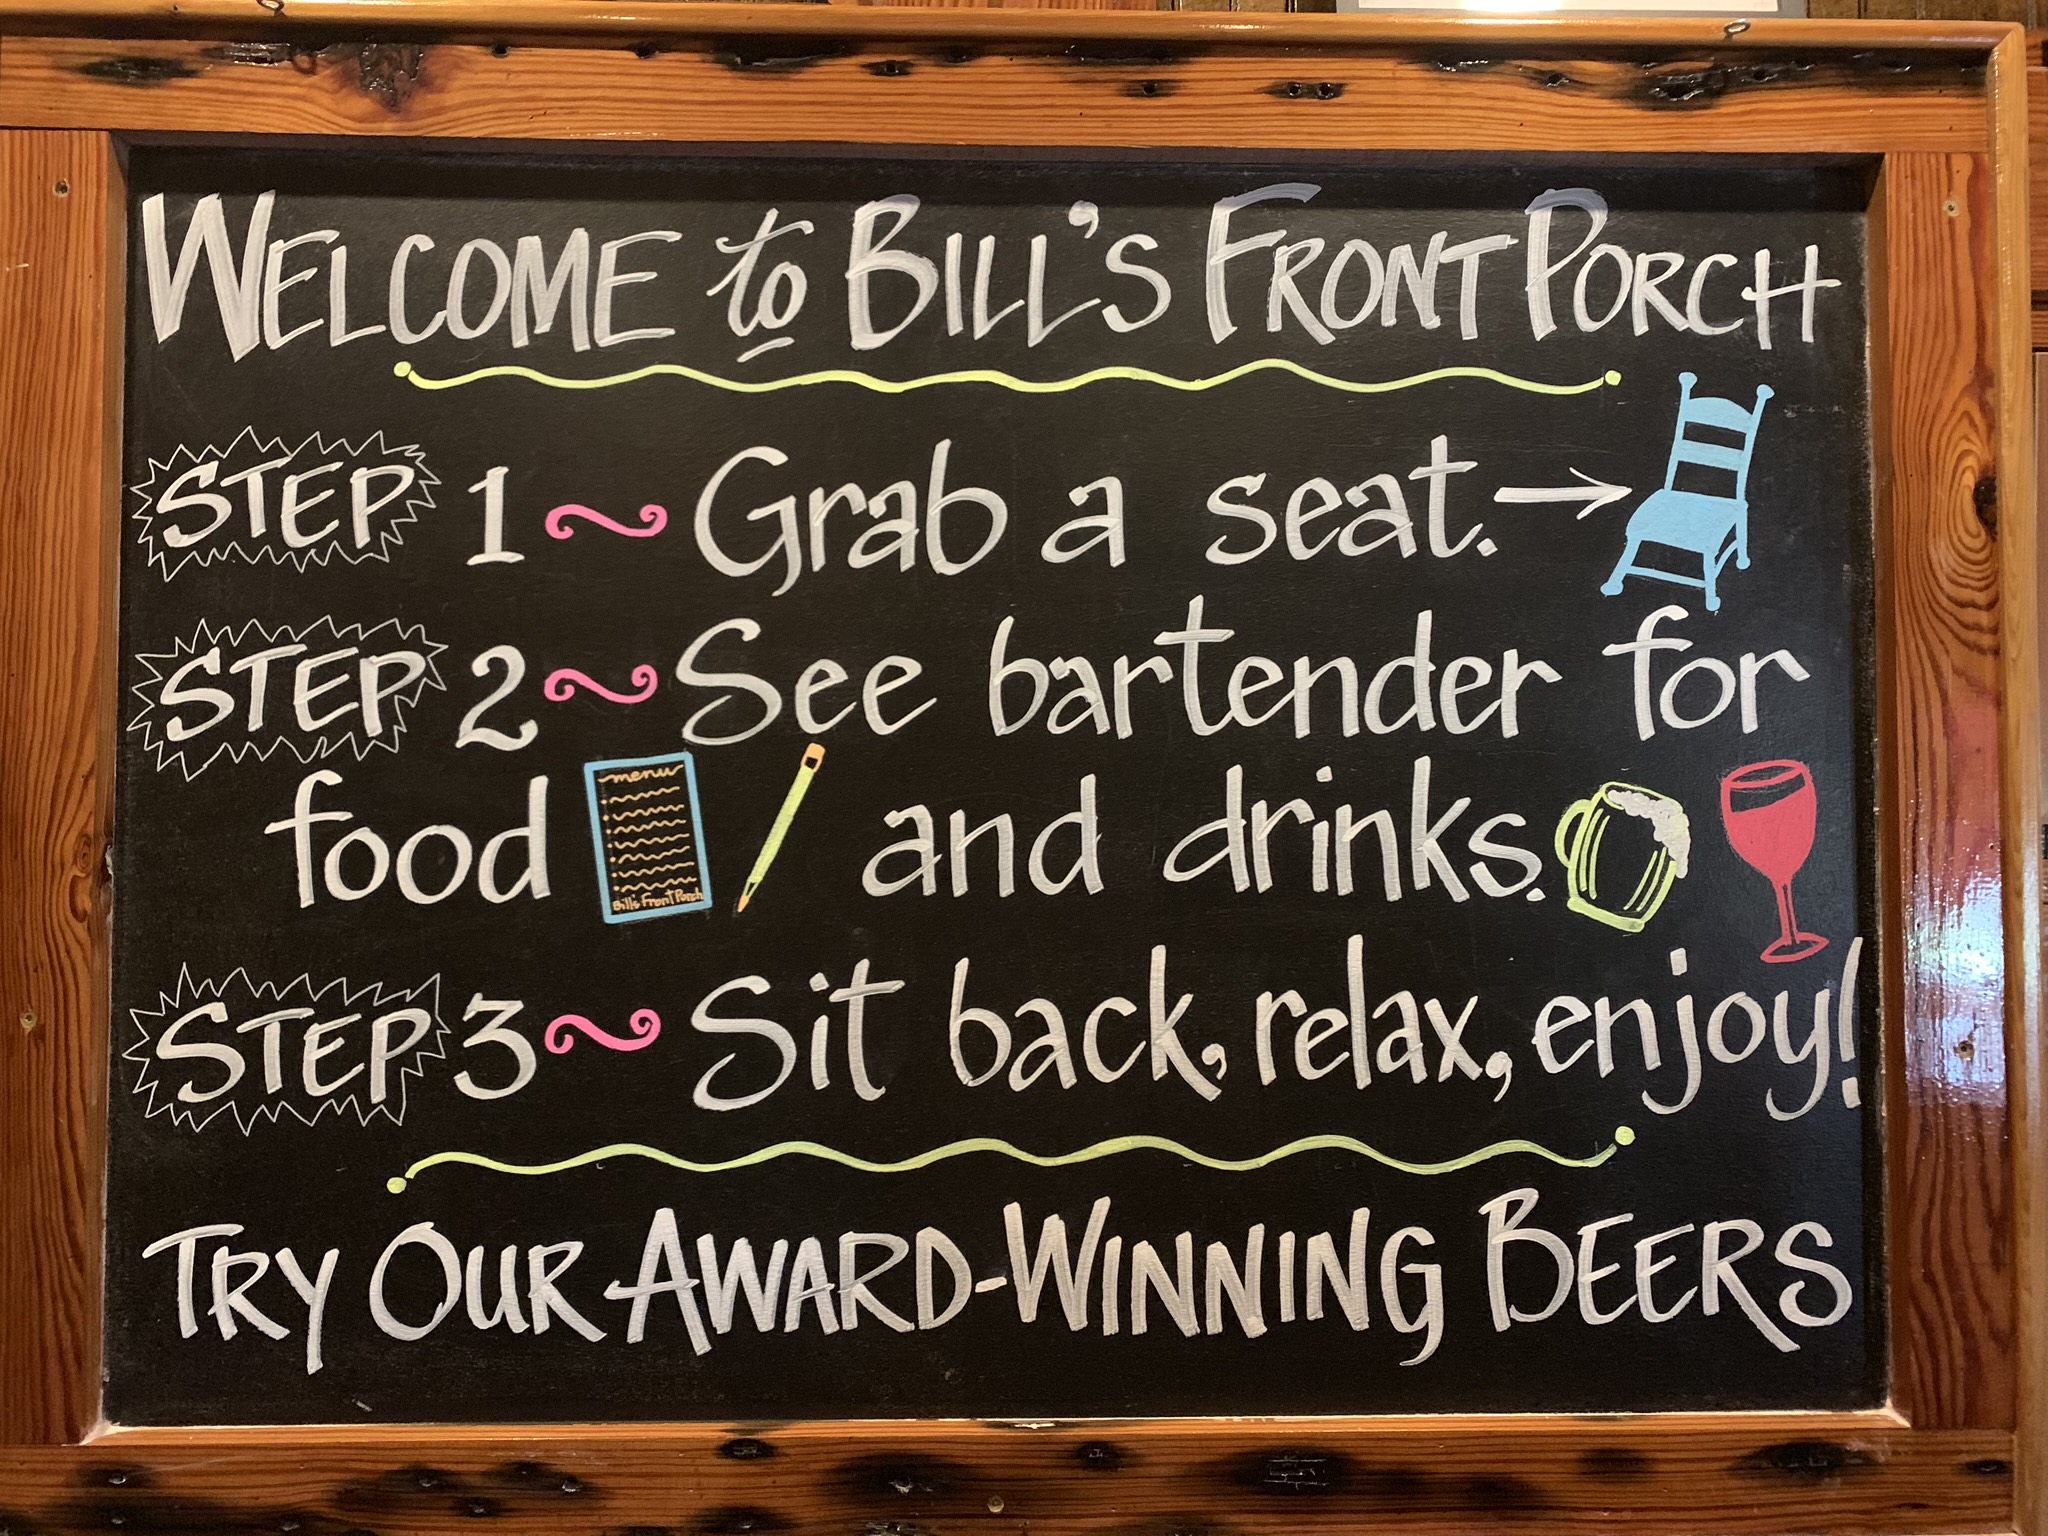 WELCOME to BILL'S FRONT PORCH
STEP 1~ Grab a seat.→
STEP 2~ See bartender for
food menu Bill's Front Porch and drinks.
STEP 3~ Sit back, relax, enjoy!
TRY OUR AWARD-WINNING BEERS